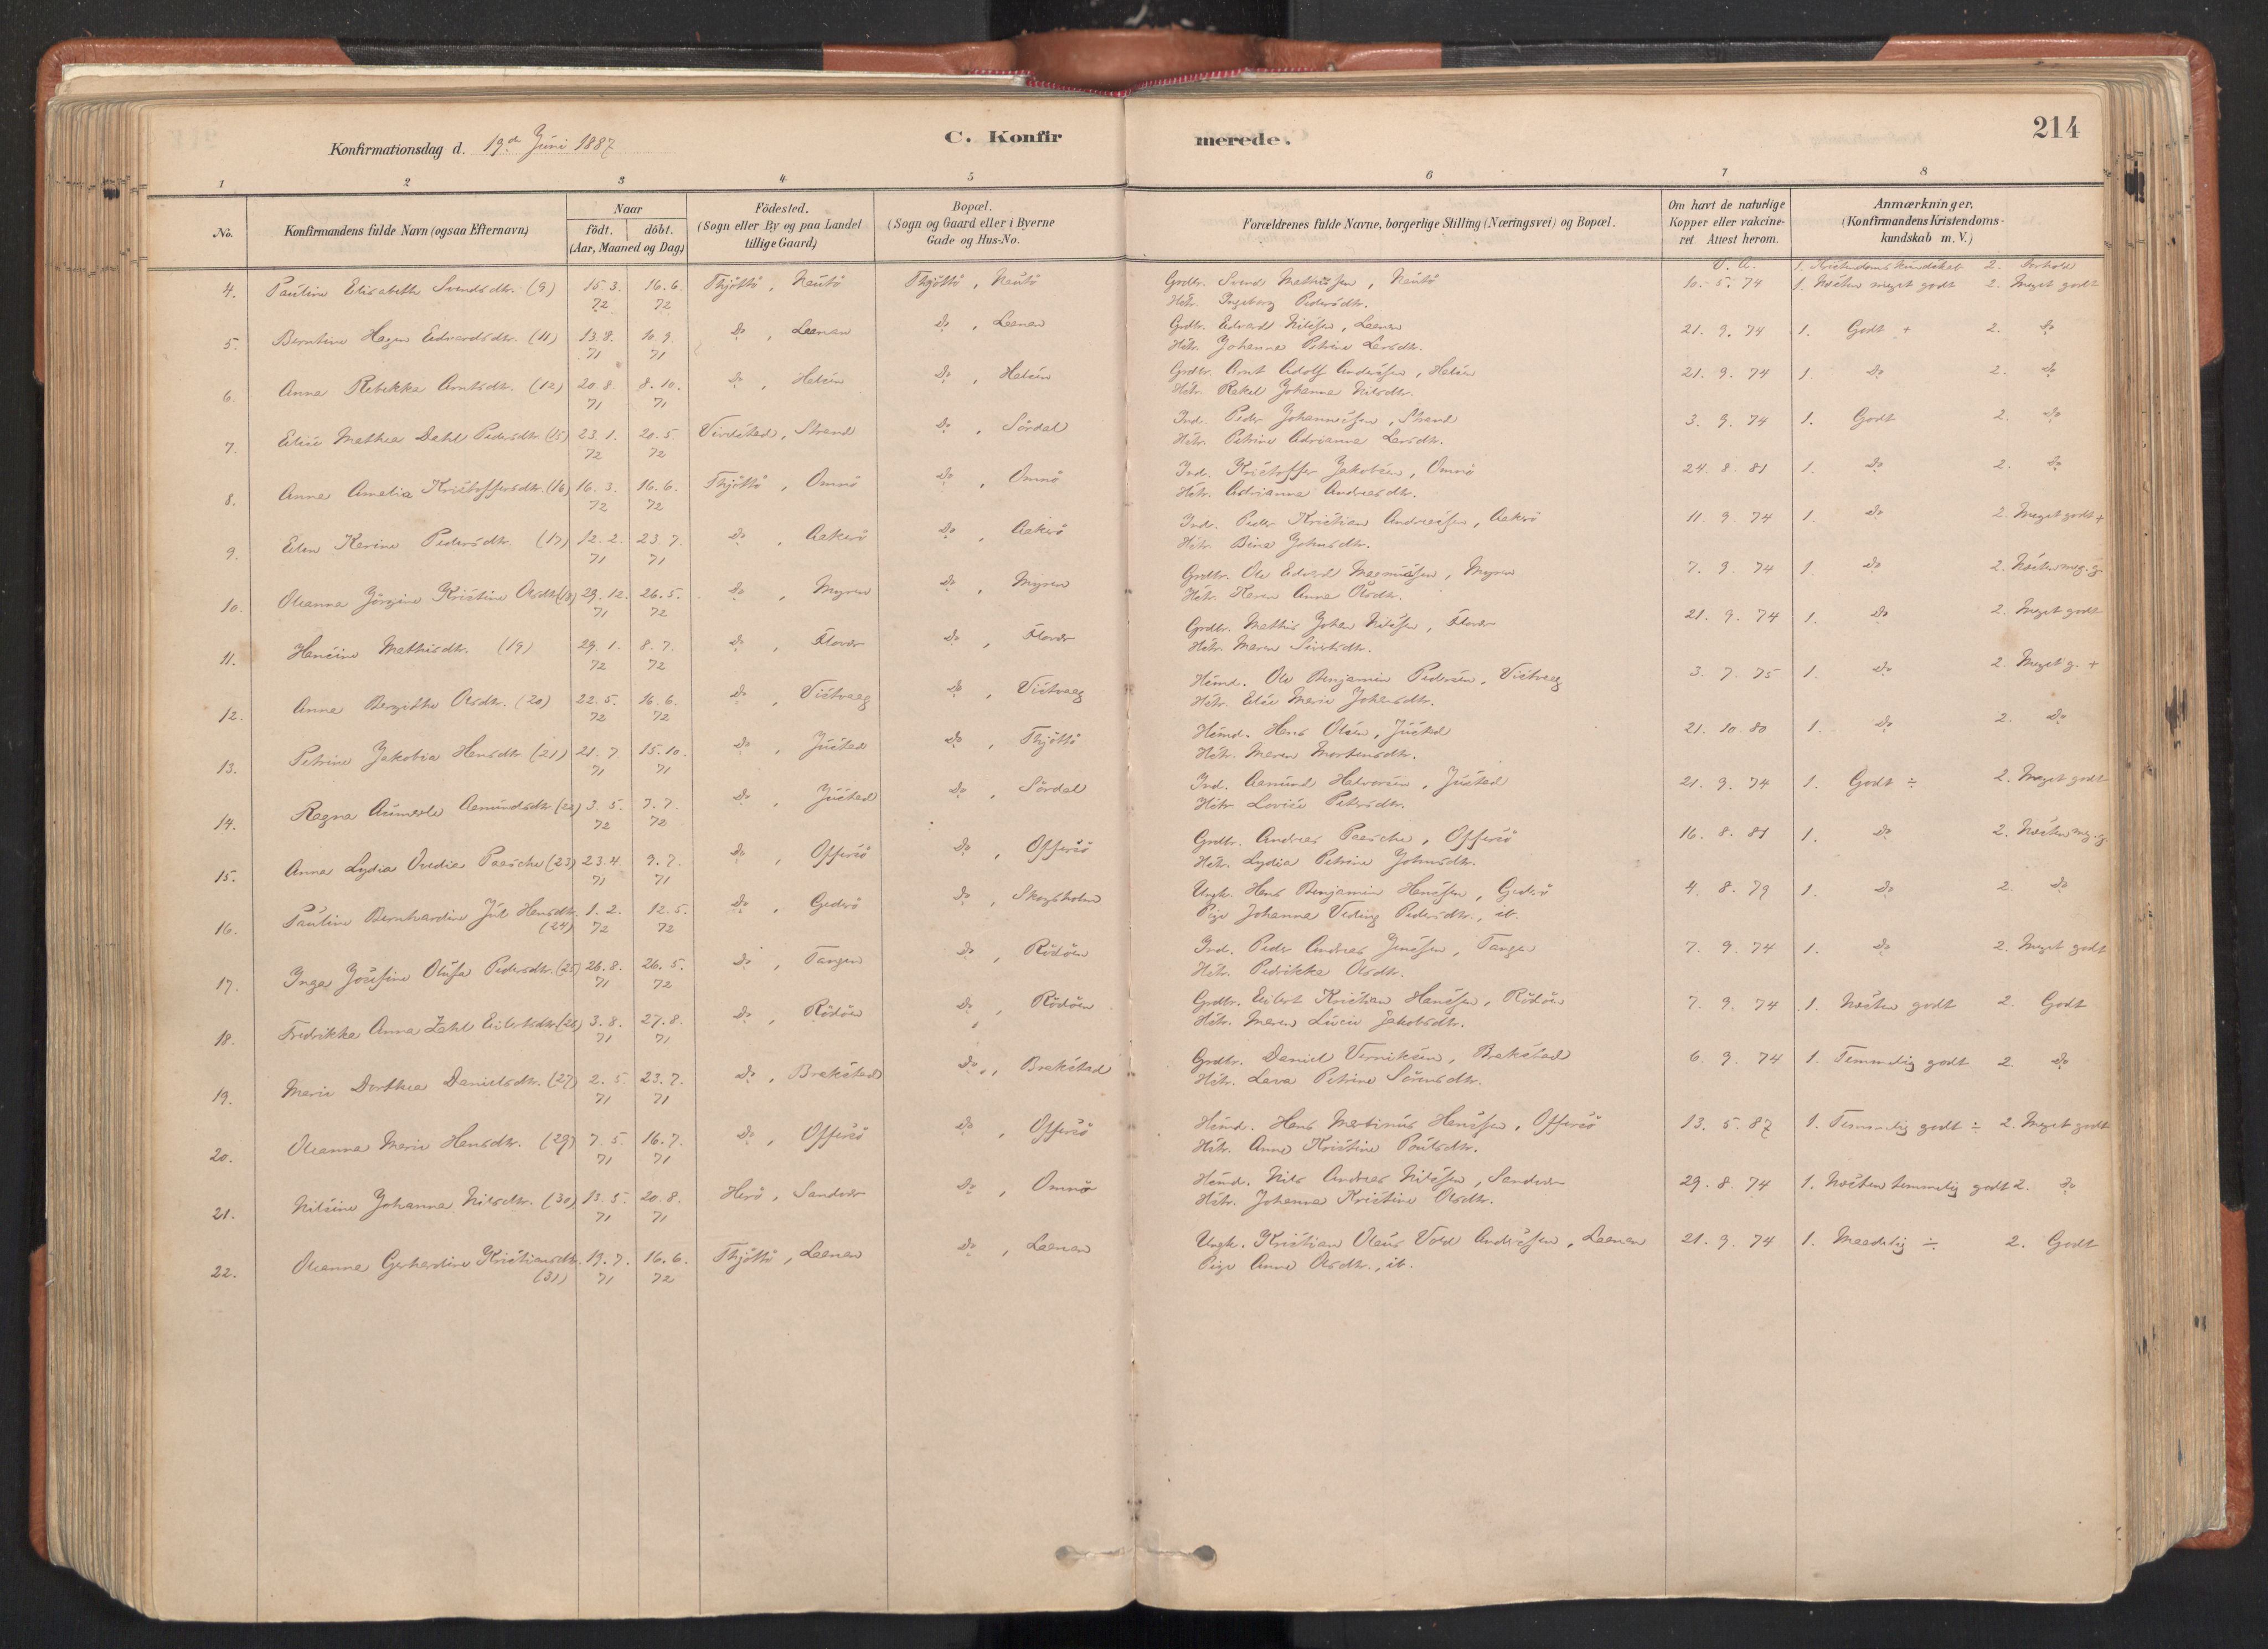 214
Konfirmationsdag d. 19de Juni 1887
C. Konfirmerede.
1 2 3 4 5 6 7 8
No. Konfirmandens fulde Navn (ogsaa Efternavn) Naar födt. döbt. (Aar, Maaned og Dag) Födested. (Sogn eller By og paa Landet tillige Gaard) Bopæl. (Sogn og Gaard eller i Byerne Gade og Hus-No. Forældrenes fulde Navne, borgerlige Stilling (Næringsvei) og Bopæl. Om havt de naturlige Kopper eller vakcineret Attest herom. Anmærkninger. (Konfirmandens Kristendomskundskab m. V.)
V. A. 1. Kristendomskundskab 2. Forhold
4. Pauline Elisabeth Svendsdtr. (9) 15. 3. 72 16. 6. 72 Thjöttö, Rautö Thjöttö, Rautö Grdbr. Svend Mathissen, Rautö 10. 5. 74 1. Næsten meget godt 2. Meget godt
Hstr. Ingeborg Pedersdtr.
5. Berntine Hagen Edvardsdtr. (11) 13. 8. 71 10. 9. 71 Do, Leenan Do, Leenan Grdbr. Edvard Nilssen, Leenan 21. 9. 74 1. Godt + 2. Do
Hstr. Johanna Petrine Larsdtr.
6. Anna Rebekka Arntsdtr. (12) 20. 8. 71 8. 10. 71 Do, Halsen Do, Halsen Grdbr. Arnt Adolf Anderssen, Halsen 21. 9. 74 1. Do 2. Do
Hstr. Rakel Johanna Nilsdtr.
7. Elise Mathea Dahl Pedersdtr. (15) 23. 1. 72 20. 5. 72 Strand Do, Sördal Ind. Peder Johannessen, Strand 3. 9. 74 1. Godt 2. Do
Hstr. Petrine Adrianna Larsdtr.
8. Anna Amalia Kristoffersdtr. (16) 16. 3. 72 16. 6. 72 Thjöttö, Omnö Do, Omnö Ind. Kristoffer Jakobsen, Omnö 24. 8. 81 1. Do 2. Do
Hstr. Adrianna Andreasdtr.
9. Elen Karine Pedersdtr. (17) 12. 2. 71 23. 7. 71 Do, Aakerö Do, Aakerö Ind. Peder Kristian Andreassen, Aakerö 11. 9. 74 1. Do 2. Meget godt +
Hstr. Bina Johnsdtr.
10. Oleanna Jörgine Kristine Olsdtr. (18) 29. 12. 71 26. 5. 72 Do, Myren Do, Myren Grdbr. Ole Edvard Magnussen, Myren 7. 9. 74 1. Do 2. Næsten meg. g.
Hstr. Karen Anna Olsdtr.
11. Hansine Mathisdtr. (19) 29. 1. 72 8. 7. 72 Do, Flovær Do, Flovær Grdbr. Mathis Johan Nilssen, Flovær 21. 9. 74 1. Do 2. Meget godt
Hstr. Maren Sivertsdtr.
12. Anna Bergitha Olsdtr. (20) 22. 5. 72 16. 6. 72 Do, Vistvaag Do, Vistvaag Husmd. Ole Benjamin Pedersen, Vistvaag 3. 7. 75 1. Do 2. Meget g. +
Hstr. Elise Marie Johansdtr.
13. Petrine Jakobia Hansdtr. (21) 21. 7. 71 15. 10. 71 Do, Justed Do, Thjöttö Husmd. Hans Olsen, Justed 21. 10. 80 1. Do 2. Do
Hstr. Maren Mortensdtr.
14. Ragna Aamundsdtr. (22) 3. 5. 72 7. 7. 72 Do, Justad Do, Sördal Ind. Aamund Halvorsen, Justad 21. 9. 74 1. Godt ÷ 2. Meget godt
Hstr. Lovise Petersdtr.
15. Anna Lydia Ovedia Paasche (23) 23. 4. 71 9. 7. 71 Do, Offersö Do, Offersö Grdbr. Andreas Paasche, Offersö 16. 8. 81 1. Do 2. Næsten meg. g.
Hstr. Lydia Petrine Johnsdtr.
16. Pauline Bernhardine Jul Hansdtr. (24) 1. 2. 72 12. 5. 72 Do, Gaderö Do, Skogsholm Ungk. Hans Benjamin Hanssen, Gaderö 4. 8. 79 1. Do 2. Do
Pige Johanna Veding Pedersdtr., ib.
17. Inga Josefine Olufa Pedersdtr. (25) 26. 8. 71 26. 5. 72 Do, Tangen Do, Rödöen Ind. Peder Andreas Jenssen, Tangen 7. 9. 74 1. Do 2. Meget godt
Hstr. Pedrikka Olsdtr.
18. Fredrikka Anna Zahl Eilertsdtr. (26) 3. 8. 71 27. 8. 71 Do, Rödöen Do, Rödöen Grdbr. Eilert Kristian Hanssen, Rödöen 7. 9. 74 1. Næsten godt 2. Godt
Hstr. Maren Lucie Jakobsdtr.
19. Marie Dorthea Danielsdtr. (27) 2. 5. 71 23. 7. 71 Do, Brakstad Do, Brakstad Grdbr. Daniel Verniksen, Brakstad 6. 9. 74 1. Temmelig godt 2. Do
Hstr. Lava Petrine Sörensdtr.
20. Oleanna Marie Hansdtr. (29) 7. 5. 71 16. 7. 71 Do, Offersö Do, Offersö Husmd. Hans Martinus Hanssen, Offersö 13. 5. 87 1. Temmelig godt ÷ 2. Meget godt
Hstr. Anna Kristine Poulsdtr.
21. Nilsine Johanna Nilsdtr. (30) 13. 5. 71 20. 8. 71 Herö, Sandvær Do, Omnö Husmd. Nils Andreas Nilssen, Sandvær 29. 8. 74 1. Næsten temmelig godt 2. Do
Hstr. Johanna Kristine Olsdtr.
22. Oleanna Gerhardine Kristiansdtr. (31) 19. 7. 71 16. 6. 72 Thjöttö, Leenan Do, Leenan Ungk. Kristian Olaus Vold Anderssen, Leenan 21. 9. 74 1. Maadelig ÷ 2. Godt
Pige Anna Olsdtr., ib.